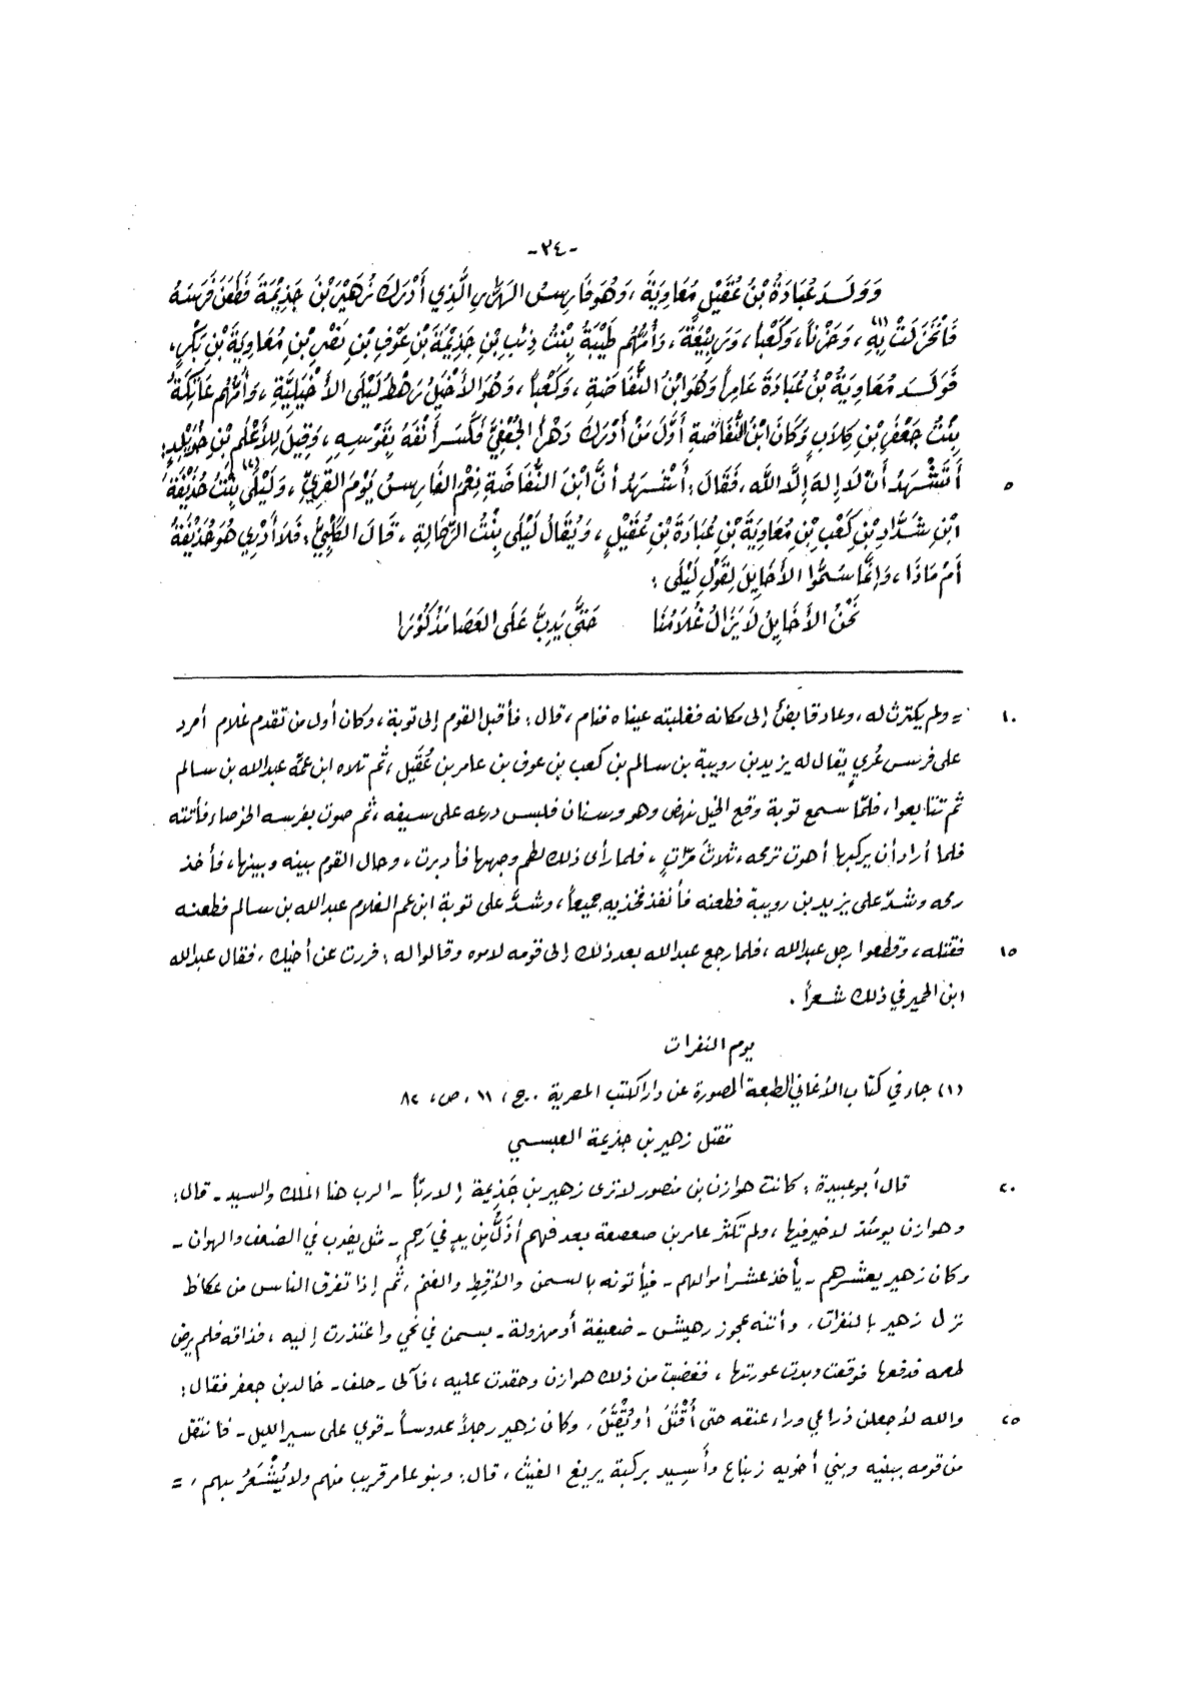 -٣٤-
وَوَلَدَ عُبَادَةُ بْنُ عُقَيْلٍ مُعَاوِيَةَ ، وَهُوَ فَارِسُ الهَرَّارِ الَّذِي أَدْرَكَ زُهَيْرَ بْنَ جَذِيْمَةَ فَطَعَنَ فَرَسَهُ
فَانْخَزَلَتْ بِهِ (١) ، وَحَزْناً ، وَكَعْباً ، وَرَبِيْعَةَ ، وَأُمُّهُم طَيْبَةُ بِنْتُ ذِئْبِ بْنِ جَذِيْمَةَ بْنِ عَوْفِ بْنِ نَصْرِ بْنِ مُعَاوِيَةَ بْنِ بَكْرٍ .
فَوَلَدَ مُعَاوِيَةُ بْنُ عُبَادَةَ عَامِراً وَهُوَ ابْنُ النُّفَاضَةِ ، وَكَعْباً ، وَهُوَ الأَخْيَلُ رَهْطُ لَيْلَى الأَخْيَلِيَّةِ ، وَأُمُّهُم عَاتِكَةُ
بِنْتُ جَعْفَرِ بْنِ كِلَابٍ وَكَانَ ابْنُ النُّفَاضَةِ أَوَّلَ مَنْ أَدْرَكَ دَهْرَ الجُعْفِيَّ فَكَسَرَ أَنْفَهُ بِقَوْسِهِ ، وَقِيلَ لِلأَعْلَمِ بْنِ خُوَيْلِدٍ :
٥ أَتَشْهَدُ أَنْ لَا إِلهَ إِلَّا اللَّه ، فَقَالَ : أَشْهَدُ أَنَّ ابْنَ النُّفَاضَةِ نِعْمَ الفَارِسُ يَوْمَ القَرِيِّ ، وَلَيْلَى (٢) بِنْتُ حُذَيْفَةَ
ابْنِ شَدَّادِ بْنِ كَعْبِ بْنِ مُعَاوِيَةَ بْنِ عُبَادَةَ بْنِ عُقَيْلٍ ، وَيُقَالُ لَيْلَى بِنْتُ الرَّحَالَةِ ، قَالَ الكَلْبِيُّ : فَلَا أَدْرِي هُوَ حُذَيْفَةُ
أَمْ مَاذَا ، وَإِنَّمَا سُمُّوا الأَخَايِلَ لِقَوْلِ لَيْلَى :
نَحْنُ الأَخَايِلُ لَا يَزَالُ غُلَامُنَا حَتَّى يَدِبَّ عَلَى العَصَا مَذْكُوْرَا
١٠ = ولم يكترث له ، وعاد قابضٌ إلى مكانه فغلبته عيناه فنام ، قال : فأقبل القوم إلى توبة ، وكان أول من تقدم غلام أمرد
على فرس عُريٍ يقال له يزيد بن رويبة بن سالم بن كعب بن عوف بن عامر بن عُقَيل ، ثم تلاه ابن عمّه عبدالله بن سالم
ثم تتابعوا ، فلمّا سمع توبة وقع الخيل نهض وهو وسنان فلبس درعه على سيفه ، ثم صوت بفرسه الخوصاء فأتته
فلما أراد أن يركبها أهوت ترمحه ، ثلاثَ مرّاتٍ ، فلما رأى ذلك لطم وجهها فأدبرت ، وحال القوم بينه وبينها ، فأخذ
رمحه وشدّ على يزيد بن رويبة فطعنه فأنفذ فخذيه جميعاً ، وشدَّ على توبة ابن عم الغلام عبدالله بن سالم فطعنه
١٥ فقتله ، وقطعوا رجل عبدالله ، فلما رجع عبدالله بعد ذلك إلى قومه لاموه وقالوا له : فررت عن أخيك ، فقال عبدالله
ابن الحمير في ذلك شعراً .
يوم النفرات
(١) جاء في كتاب الأغاني الطبعة المصورة عن دار الكتب المصرية . ج : ١١ ، ص : ٨٢
مقتل زهير بن جذيمة العبسي
٢٠ قال أبو عبيدة : كانت هوازن بن منصور لا ترى زهير بن جَذِيمة إلا ربّاً - الرب هنا الملك والسيد - قال :
وهوازن يومئذ لا خير فيها ، ولم تكثر عامر بن صعصعة بعد فهم أذلُّ من يدٍ في رَحِمٍ - مثل يضرب في الضعف والهوان -
وكان زهير يعشّرهم - يأخذ عشر أموالهم - فيأتونه بالسمن والأقِط والغنم ، ثم إذا تفرق الناس من عكاظ
نزل زهير بالنفرات ، وأتته عجوز رهيش - ضعيفة أو مهزولة - بسمن في نحي واعتذرت إليه ، فذاقه فلم يرض
طعمه فدفعها فوقعت وبدت عورتها ، فغضبت من ذلك هوازن وحقدت عليه ، فآلى - حلف - خالد بن جعفر فقال :
٢٥ والله لأجعلن ذراعي وراء عنقه حتى أُقْتَلَ أو يُقْتَلَ ، وكان زهير رجلاً عدوساً - قوي على سير الليل - فانتقل
من قومه ببنيه وبني أخويه زنباع وأَسِيد بركبة يريغ الغيث ، قال : وبنو عامر قريب منهم ولا يُشْعَرُ بهم ، =